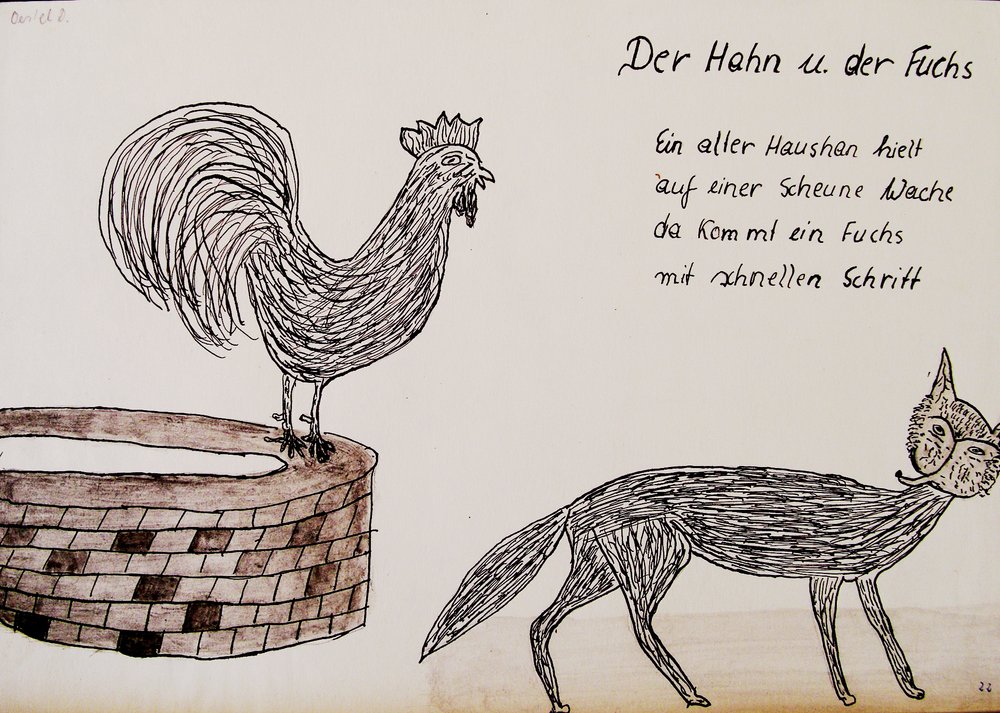 Der Hahn u. der Fuchs
Ein alter Haushan hielt
auf einer Scheune Wache
da kommt ein Fuchs
mit schnellen Schritt
22